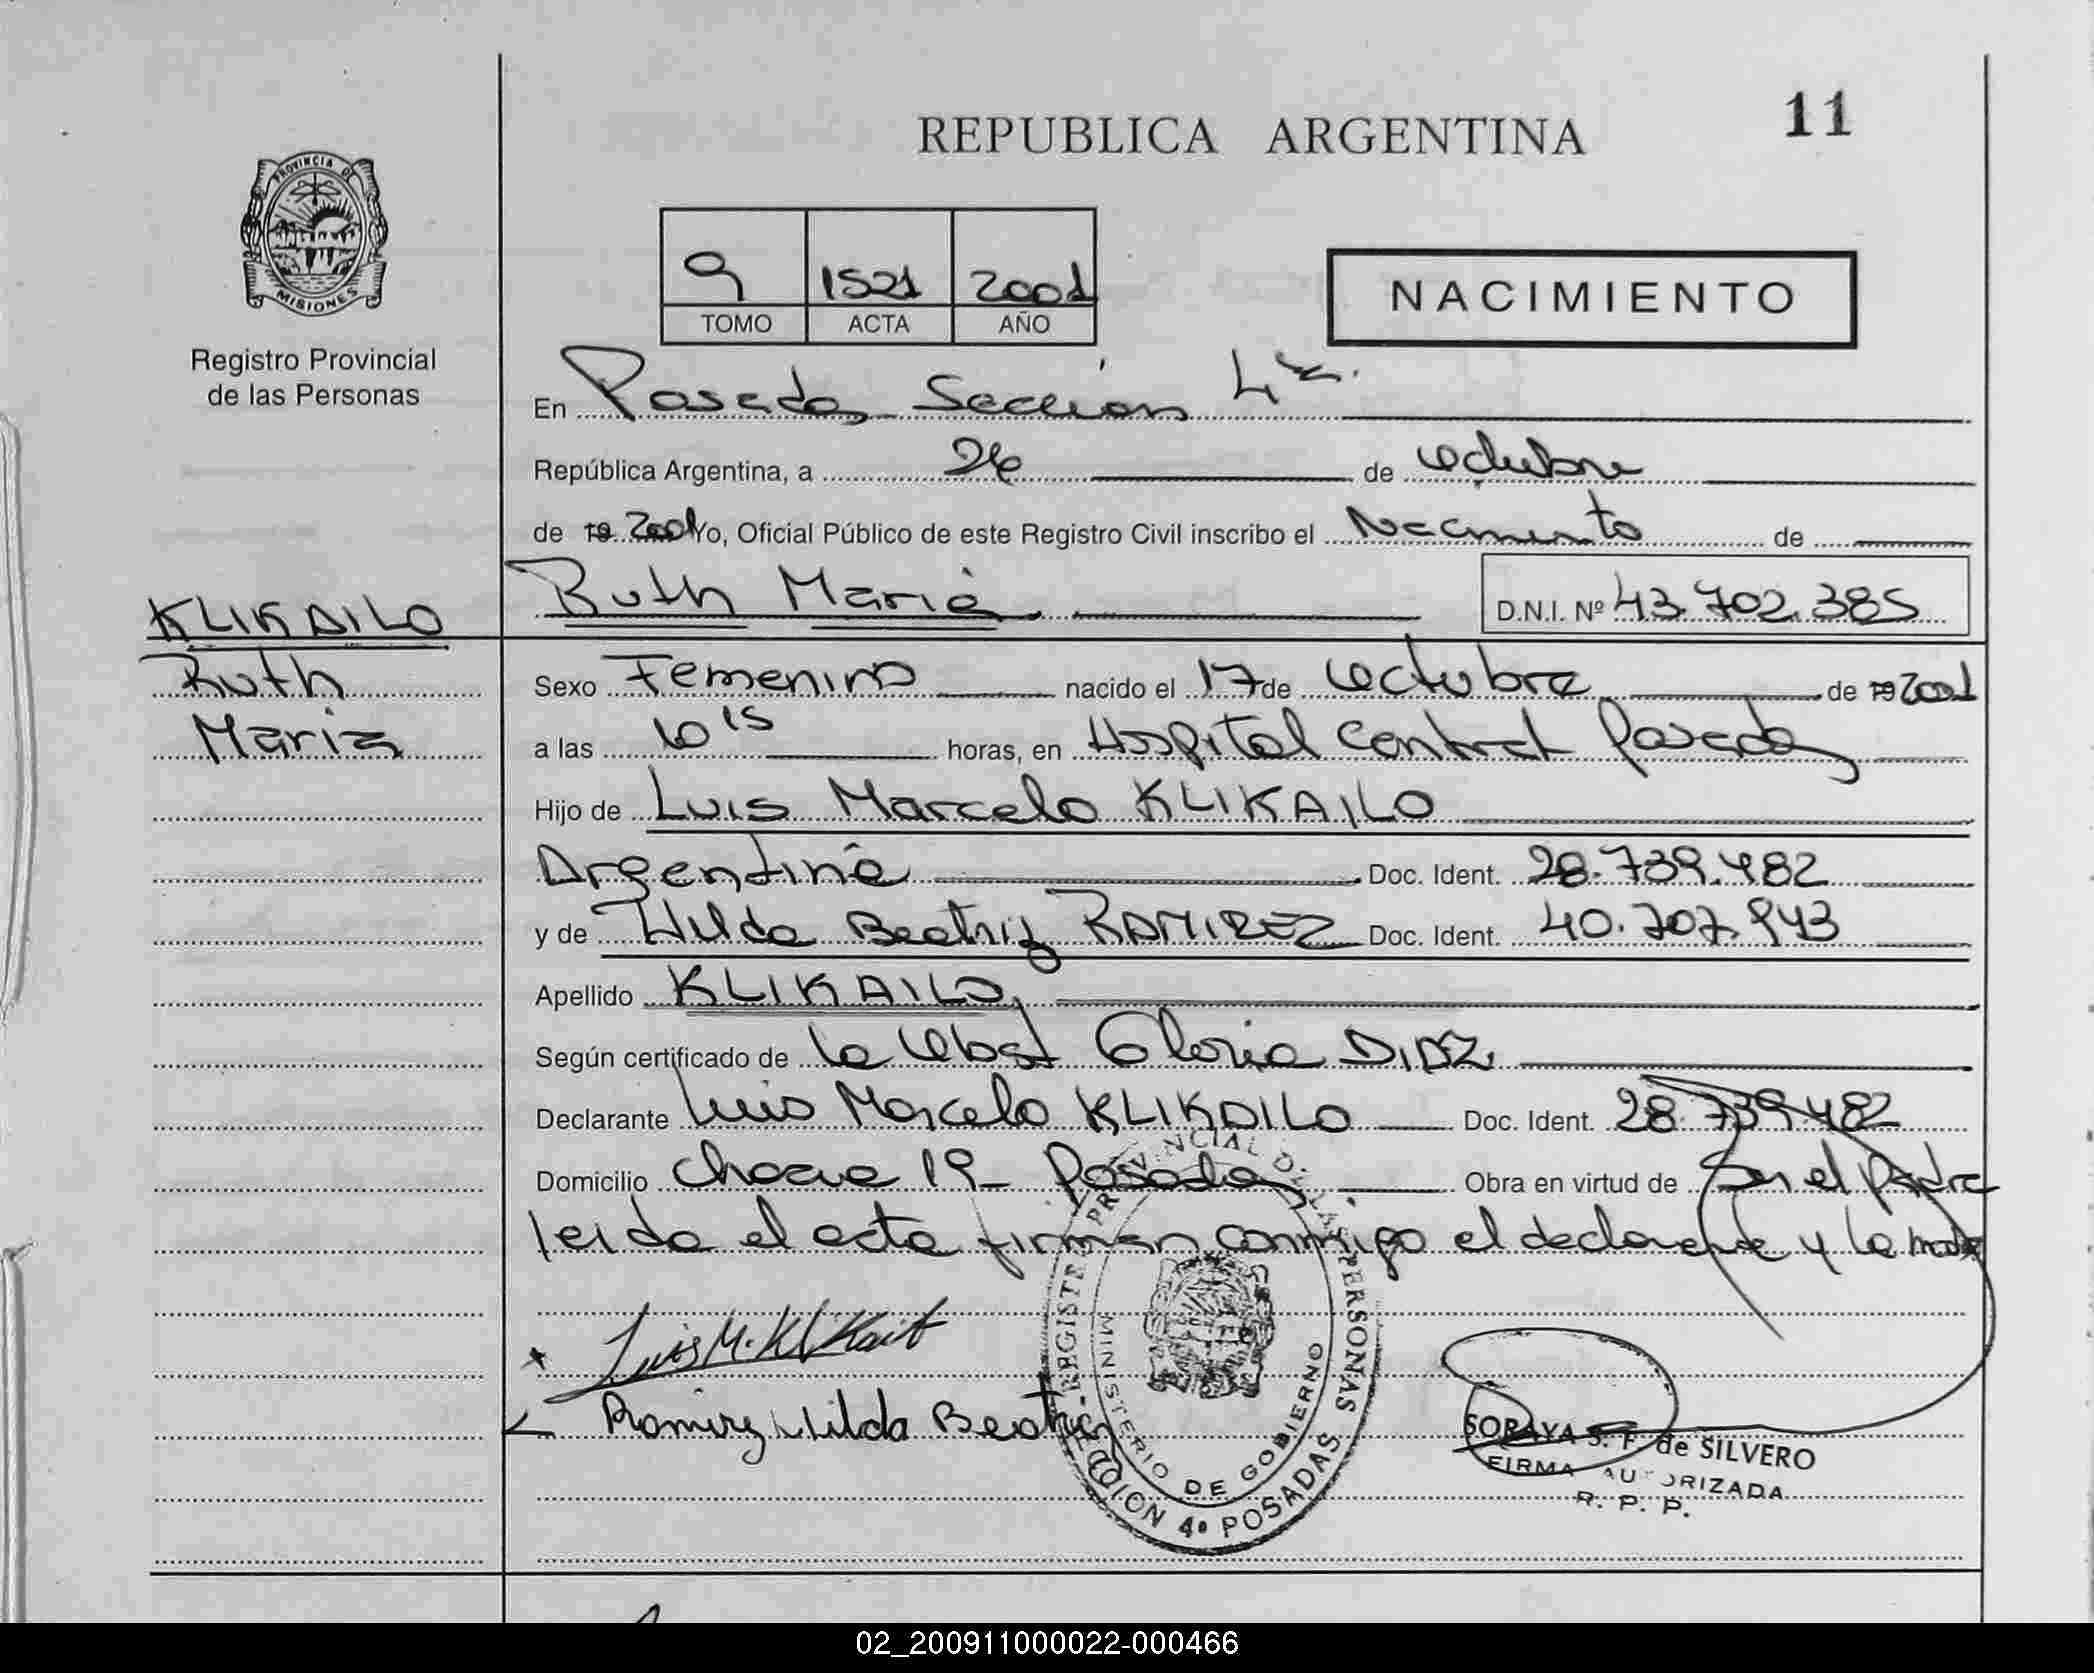 REPUBLICA ARGENTINA
11
PROVINCIA DE
MISIONES
Registro Provincial
de las Personas
9 1521 2001
TOMO ACTA AÑO
NACIMIENTO
En Posadas Sección 4ta.
República Argentina, a 26 de octubre
de 19 2001 Yo, Oficial Público de este Registro Civil inscribo el Nacimiento de
Ruth María D.N.I. Nº 43.702.385
KLIKAILO
Ruth
María
Sexo Femenino nacido el 17 de octubre de 19 2001
a las 10 15 horas, en Hospital Central Posadas
Hijo de Luis Marcelo KLIKAILO
Argentina Doc. Ident. 28.739.482
y de Hilda Beatriz RAMIREZ Doc. Ident. 40.707.943
Apellido KLIKAILO,
Según certificado de la Obst Gloria DIAZ.
Declarante Luis Marcelo KLIKAILO Doc. Ident. 28.739.482
Domicilio 19 Posadas Obra en virtud de Ser el Padre
leída el acta firman conmigo el declarante y la madre
Luis M. Klikailo
Ramirez Hilda Beatriz
REGISTRO PROVINCIAL DE LAS PERSONAS
MINISTERIO DE GOBIERNO
SECCION 4º POSADAS
SORAYA S. F. de SILVERO
FIRMA AUTORIZADA
R. P. P.
02_200911000022-000466